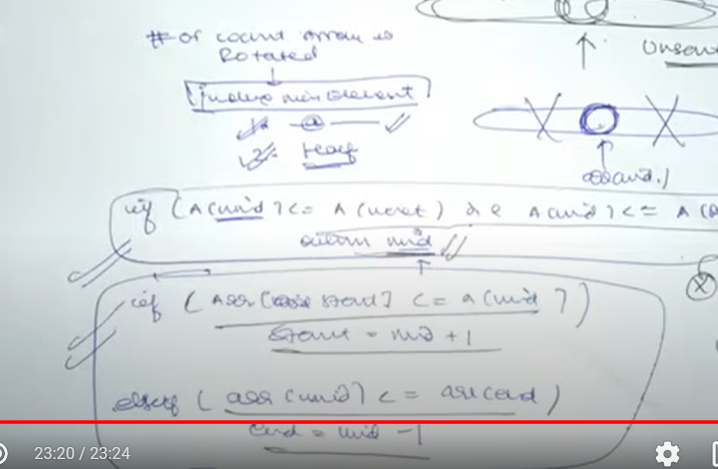 # of count Array is
Rotated
Unsor
(index min Element
Half
if (A[mid] <= A(next) && A[mid] <= A(p
return mid
if (Arr[start] <= a[mid])
start = mid + 1
elseif (arr[mid] <= arr[end)
end = mid - 1
23:20 / 23:24